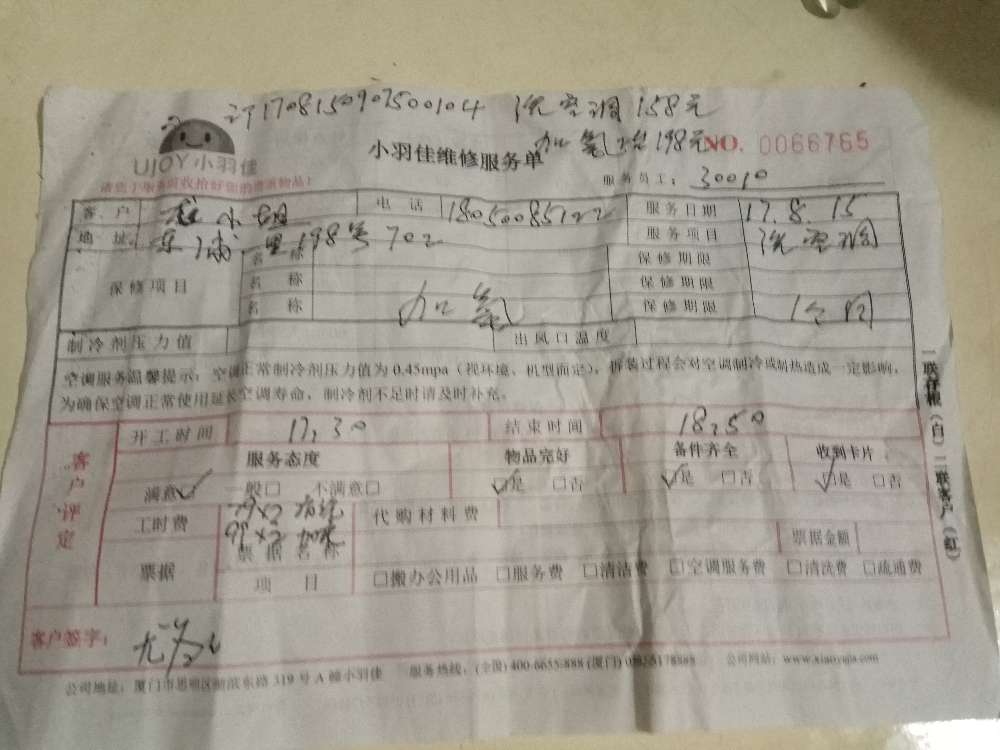 订1708150907500104 洗空调158元
UJOY小羽佳
小羽佳维修服务单
加氟 198元
NO. 0066765
服务员工: 30010
客户 小姐 电话 18050085122 服务日期 17.8.15
地址: 里198号702 服务项目 洗空调
保修项目 名称 保修期限
名称 保修期限
名称 加氟 保修期限 1个月
制冷剂压力值 出风口温度
空调服务温馨提示:空调正常制冷剂压力值为0.45mpa(视环境、机型而定),拆装过程会对空调制冷或制热造成一定影响,
为确保空调正常使用延长空调寿命,制冷剂不足时请及时补充。
一联存根(白)二联客户(红)
客户评定
开工时间 17:30 结束时间 18:50
服务态度 物品完好 备件齐全 收到卡片
满意☑ 一般□ 不满意□ ☑是 □否 ☑是 □否 ☑是 □否
工时费 79×2 清洗 代购材料费
99×2 加氟
票据 票据名称 票据金额
项目 □搬办公用品 □服务费 □清洁费 □空调服务费 □清洗费 □疏通费
客户签字:
公司地址:厦门市思明区湖滨东路319号A幢小羽佳 服务热线:(全国)400-6655-888 (厦门) 公司网站:www.xiaoyujia.com